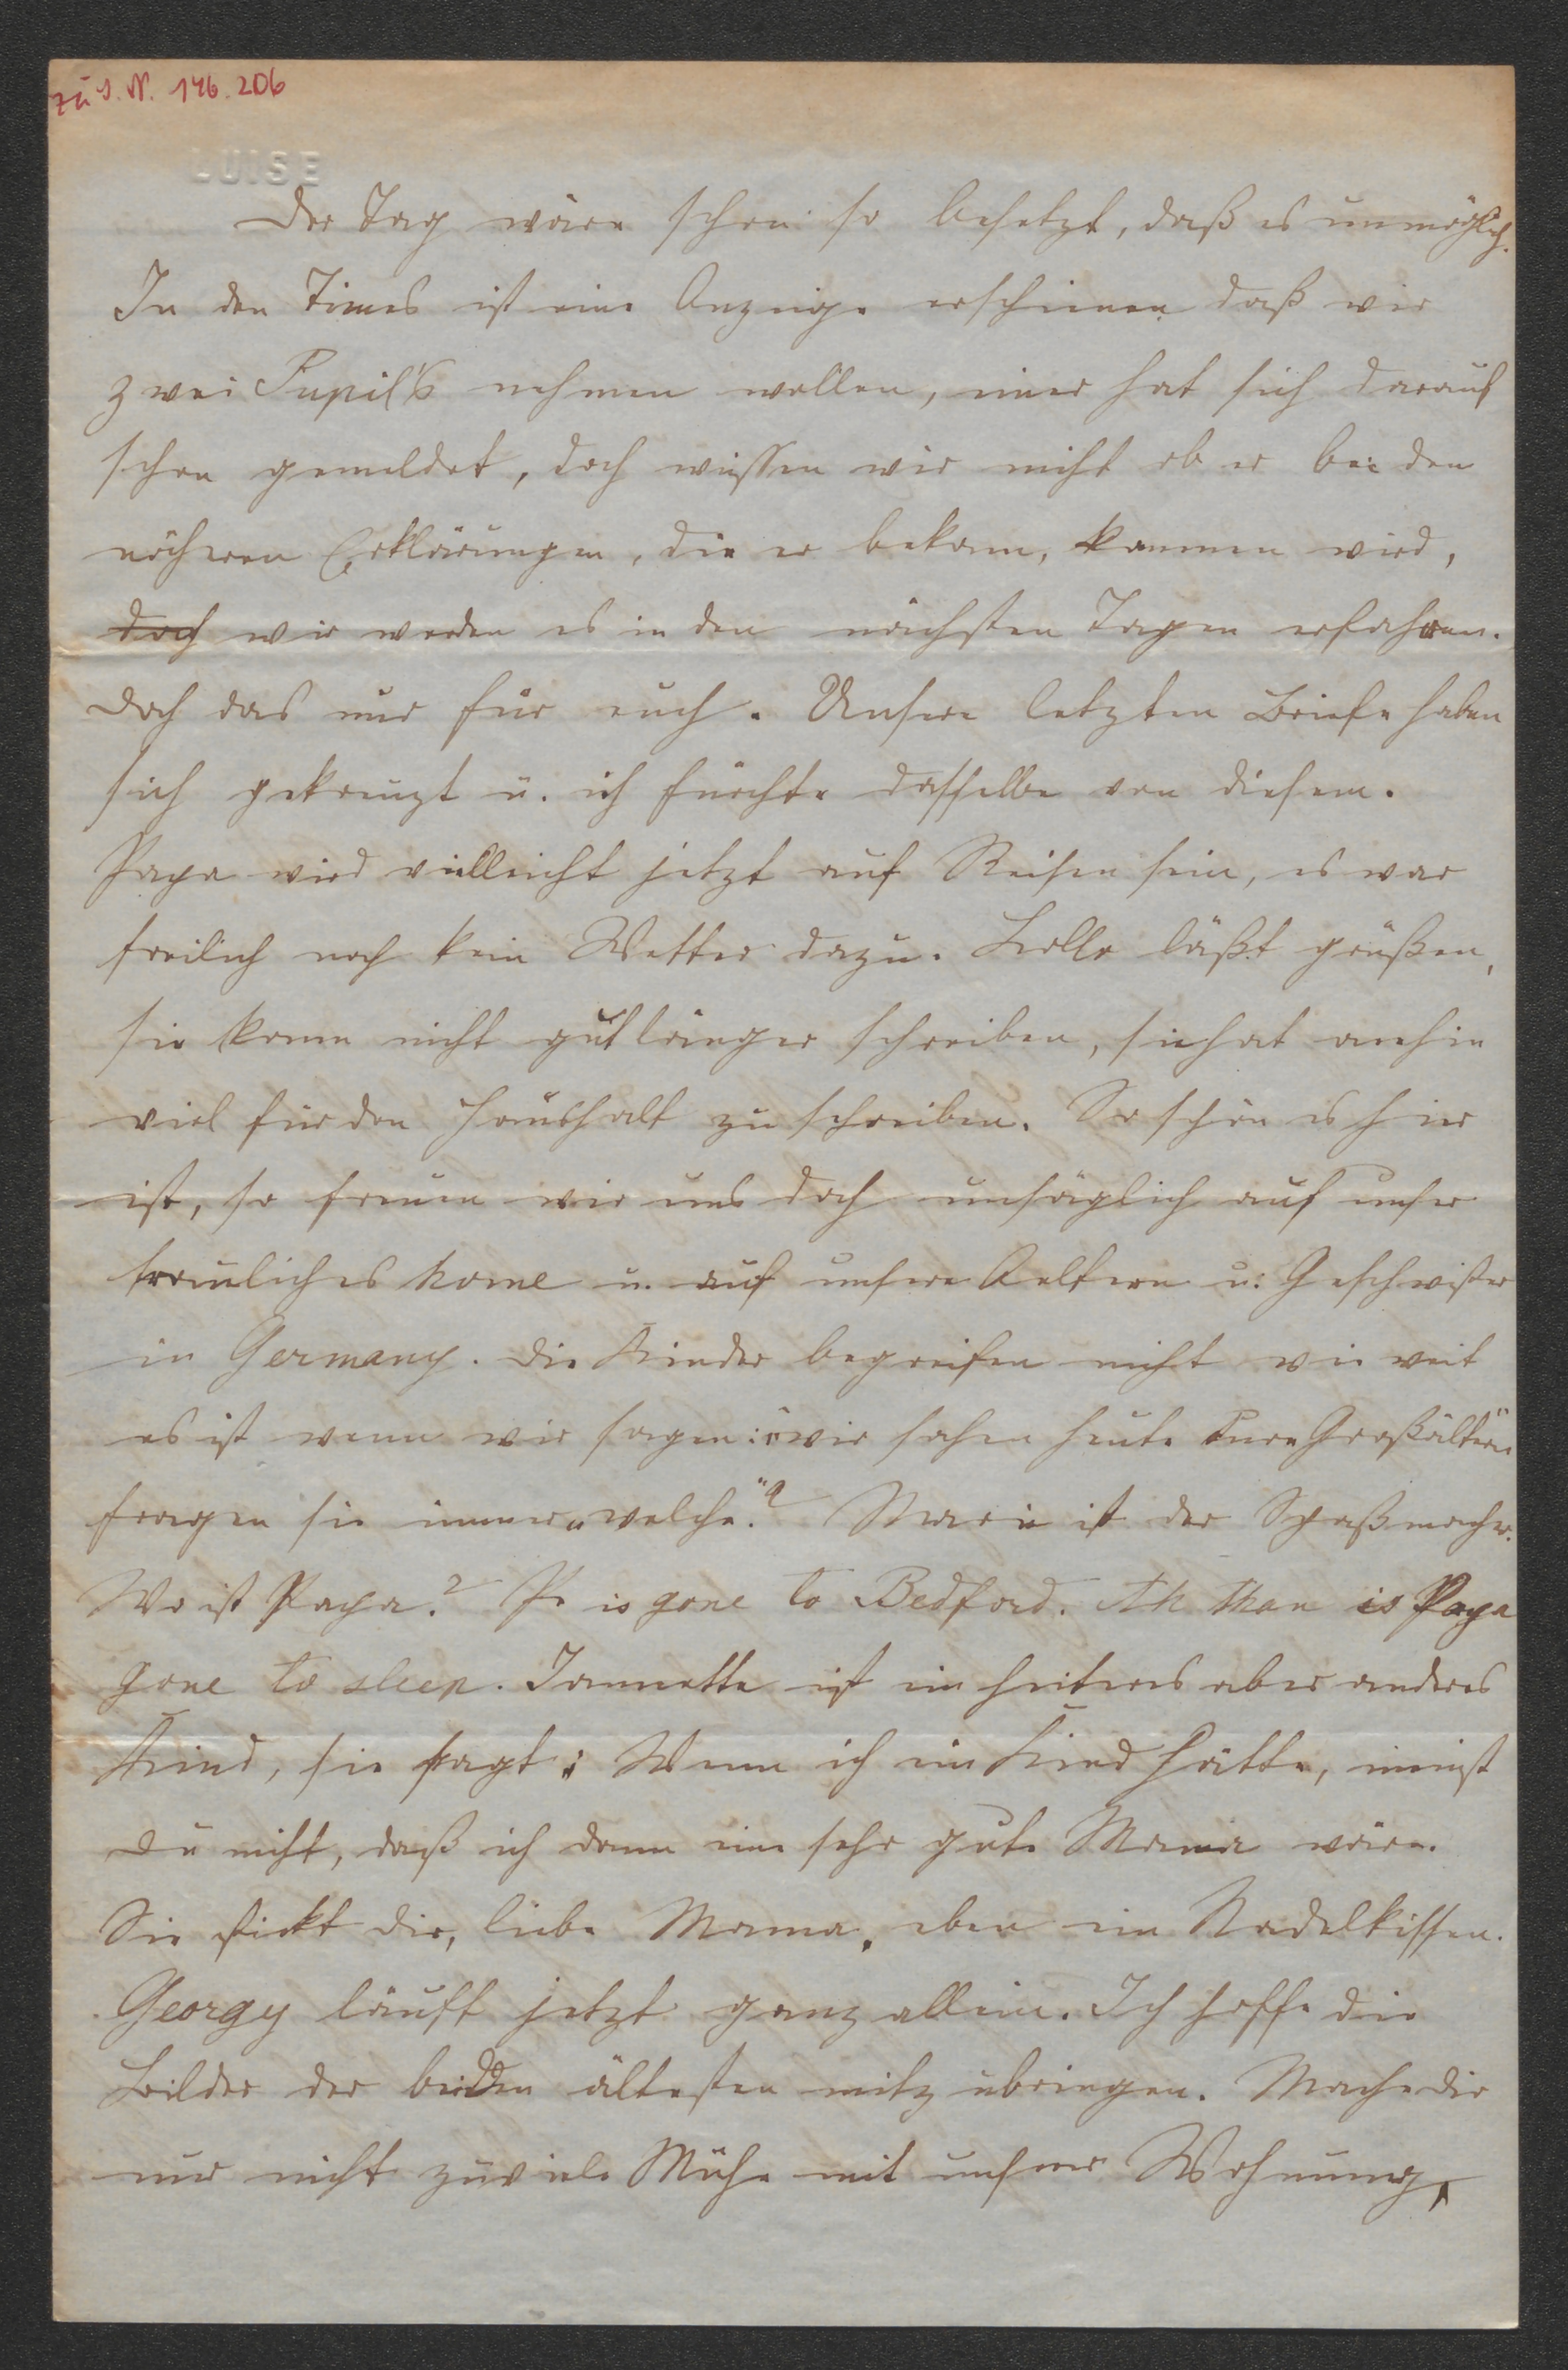 zu I. N. 146.206
LUISE
Der Tag wäre schon so besetzt, daß es unmöglich.
In den Times ist eine Anzeige erschienen daß wir
zwei Pupil's nehmen wollen, einer hat sich darauf
schon gemeldet, doch wissen wir nicht ob er bei den
näheren Erklärungen, die er bekam, kommen wird,
doch wir werden es in den nächsten Tagen erfahren.
Doch das nur für euch. Unsere letzten Briefe haben
sich gekreuzt u. ich fürchte dasselbe von diesem.
Papa wird vielleicht jetzt auf Reisen sein, es war
freilich noch kein Wetter dazu. Lolle läßt grüßen,
sie kann nicht gut länger schreiben, sie hat ohnehin
viel für den Haushalt zu schreiben. So schön es hier
ist, so freuen wir uns doch unsäglich auf unser
trauliches home u. auf unsere Aeltern u. Geschwister
in Germany. Die Kinder begreifen nicht wie weit
es ist wenn wir sagen: "wir sahen heute Eure Großältern"
fragen sie immer "welche"? Marie ist der Spaßmacher.
Wo ist Papa? Pa is gone to Bedford. Ah than is Papa
gone to sleep. Jannette ist ein heiteres aber anderes
Kind, sie sagt: Wenn ich ein Kind hätte, meinst
Du nicht, daß ich dann eine sehr gute Mama wäre.
Sie stickt Dir, liebe Mama, eben ein Nadelkissen.
Georgy läuft jetzt ganz allein. Ich hoffe die
Bilder der beiden ältesten mitzubringen. Mache Dir
nur nicht zuviele Mühe mit unserer Wohnung,